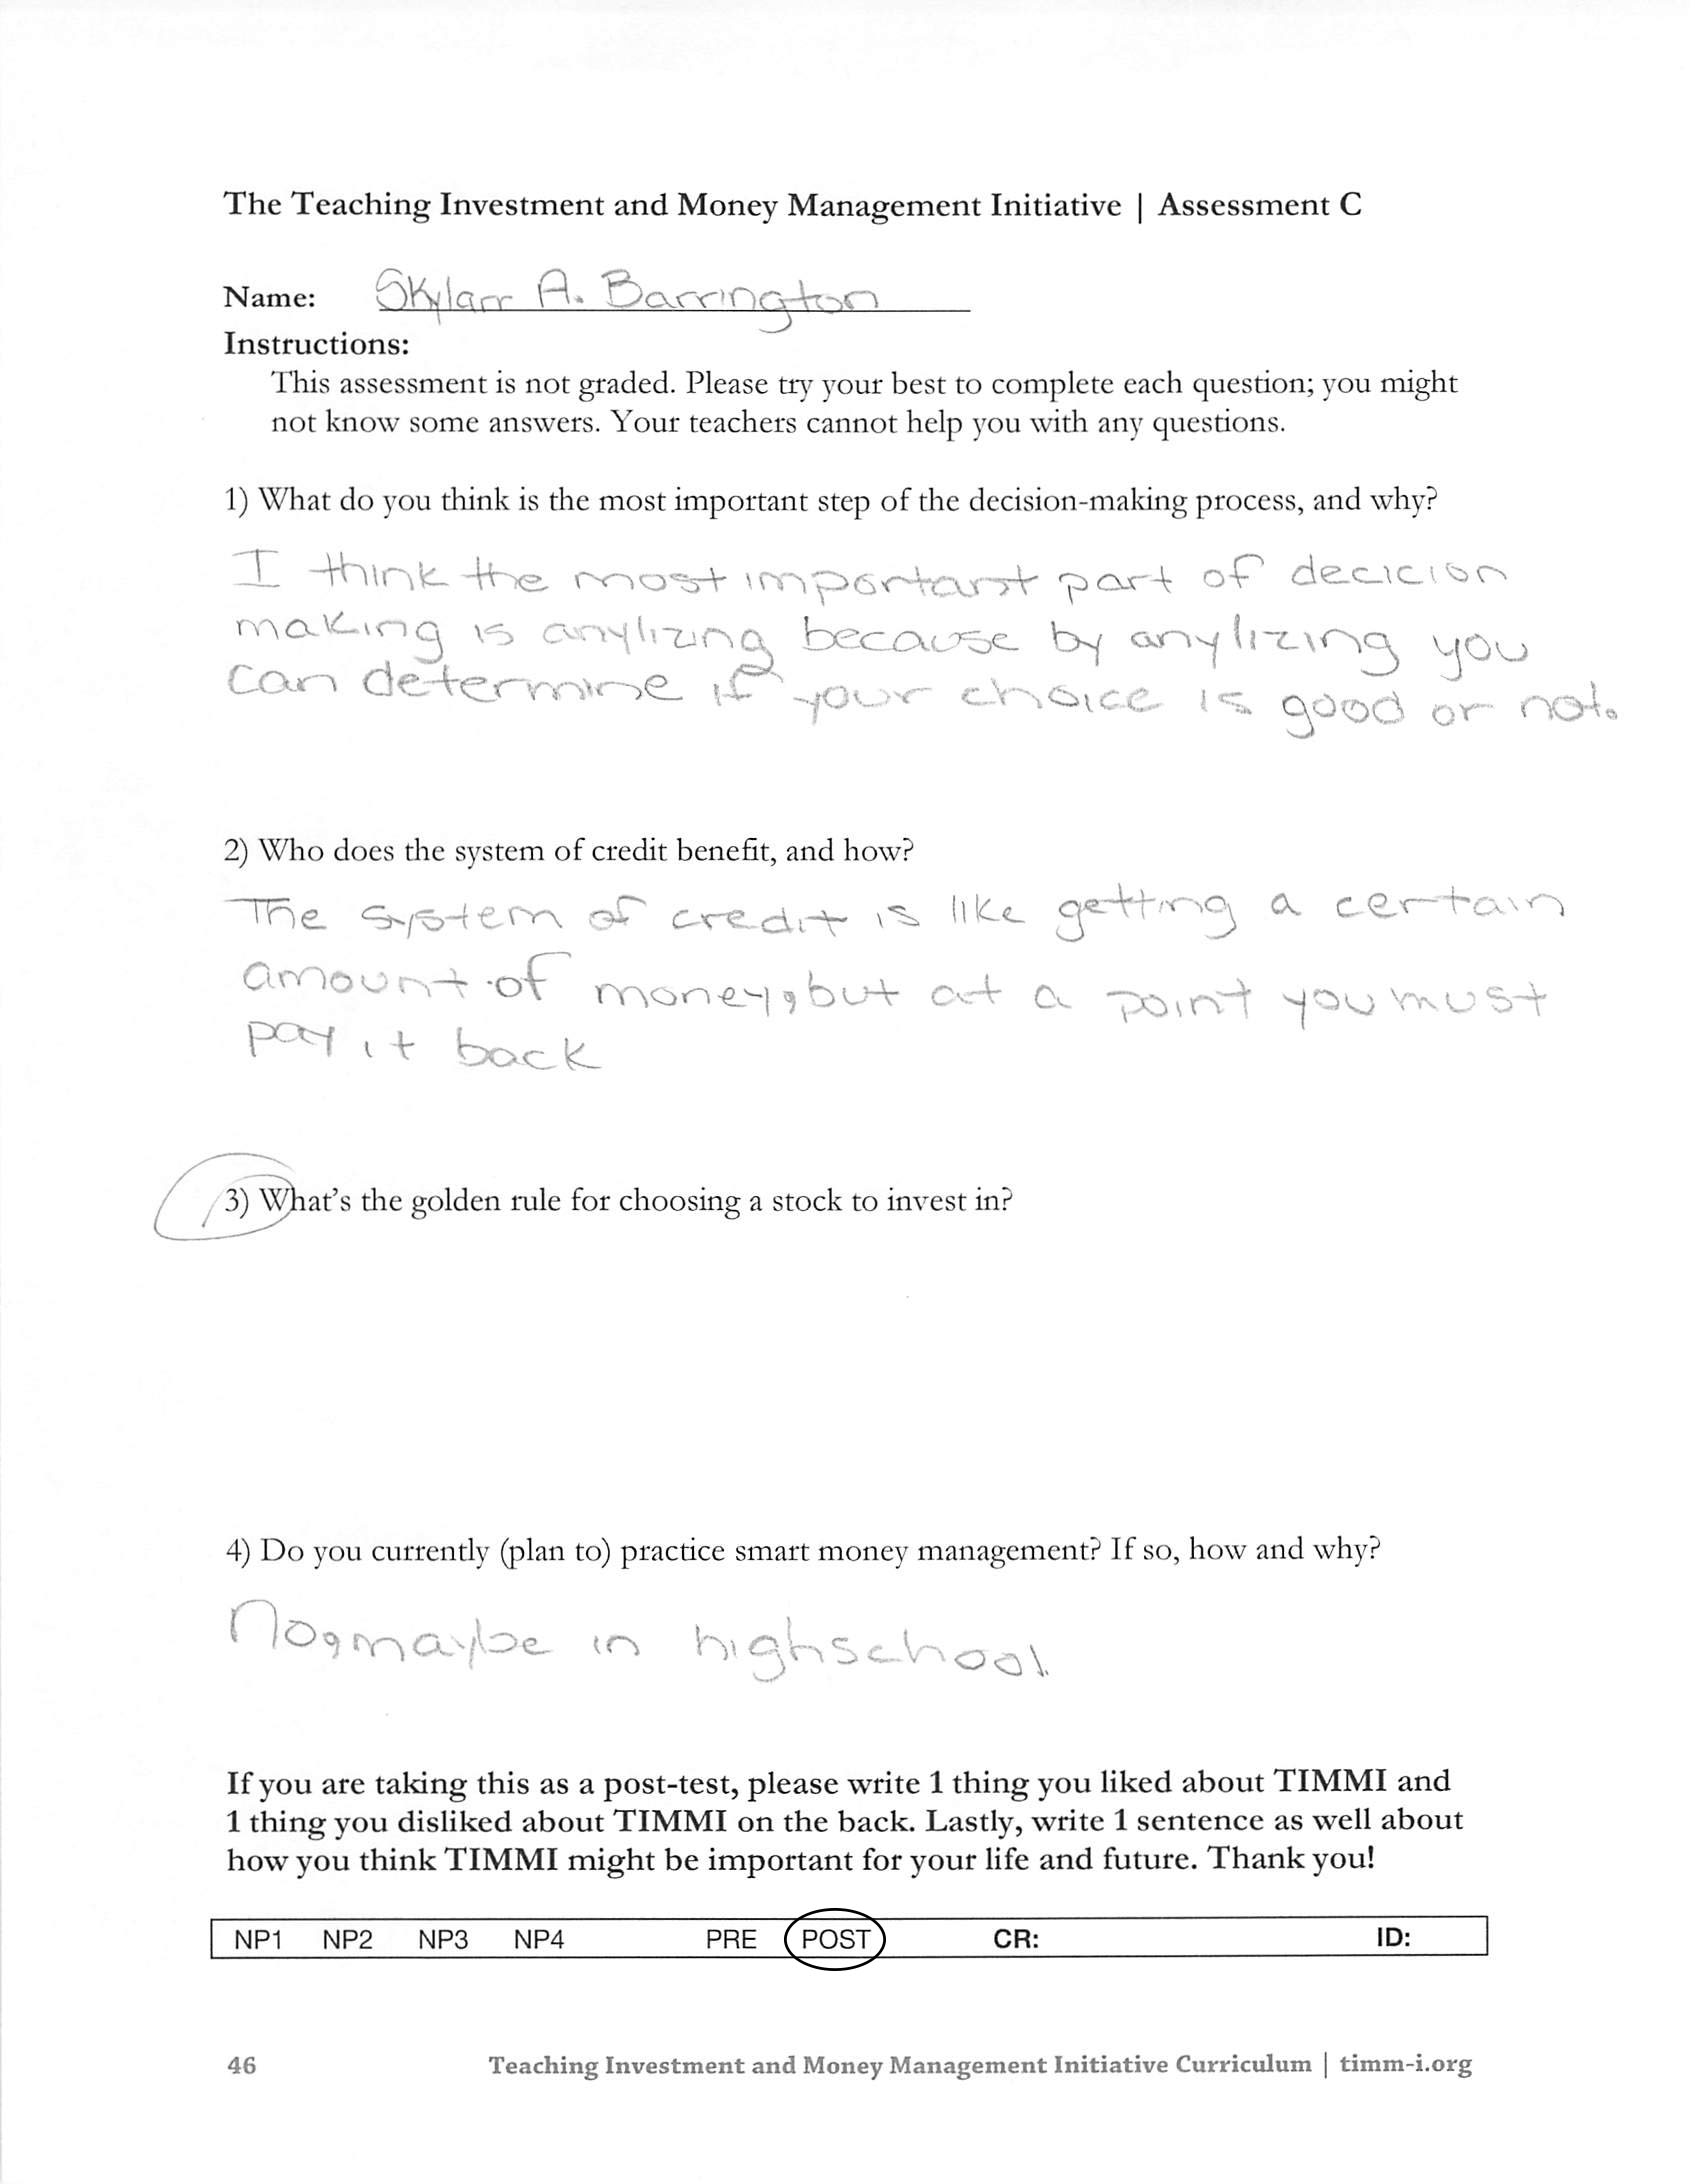 The Teaching Investment and Money Management Initiative | Assessment C
Name: Skylarr A. Barrington
Instructions:
This assessment is not graded. Please try your best to complete each question; you might
not know some answers. Your teachers cannot help you with any questions.
1) What do you think is the most important step of the decision-making process, and why?
I think the most important part of decicion
making is anylizing because by anylizing you
can determine if your choice is good or not.
2) Who does the system of credit benefit, and how?
The system of credit is like getting a certain
amount of money, but at a point you must
pay it back
3) What's the golden rule for choosing a stock to invest in?
4) Do you currently (plan to) practice smart money management? If so, how and why?
No, maybe in highschool.
If you are taking this as a post-test, please write 1 thing you liked about TIMMI and
1 thing you disliked about TIMMI on the back. Lastly, write 1 sentence as well about
how you think TIMMI might be important for your life and future. Thank you!
NP1 NP2 NP3 NP4 PRE POST CR: ID:
46 Teaching Investment and Money Management Initiative Curriculum | timm-i.org